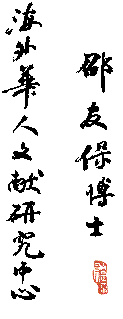 邵友保博士
海外華人文献研究中心